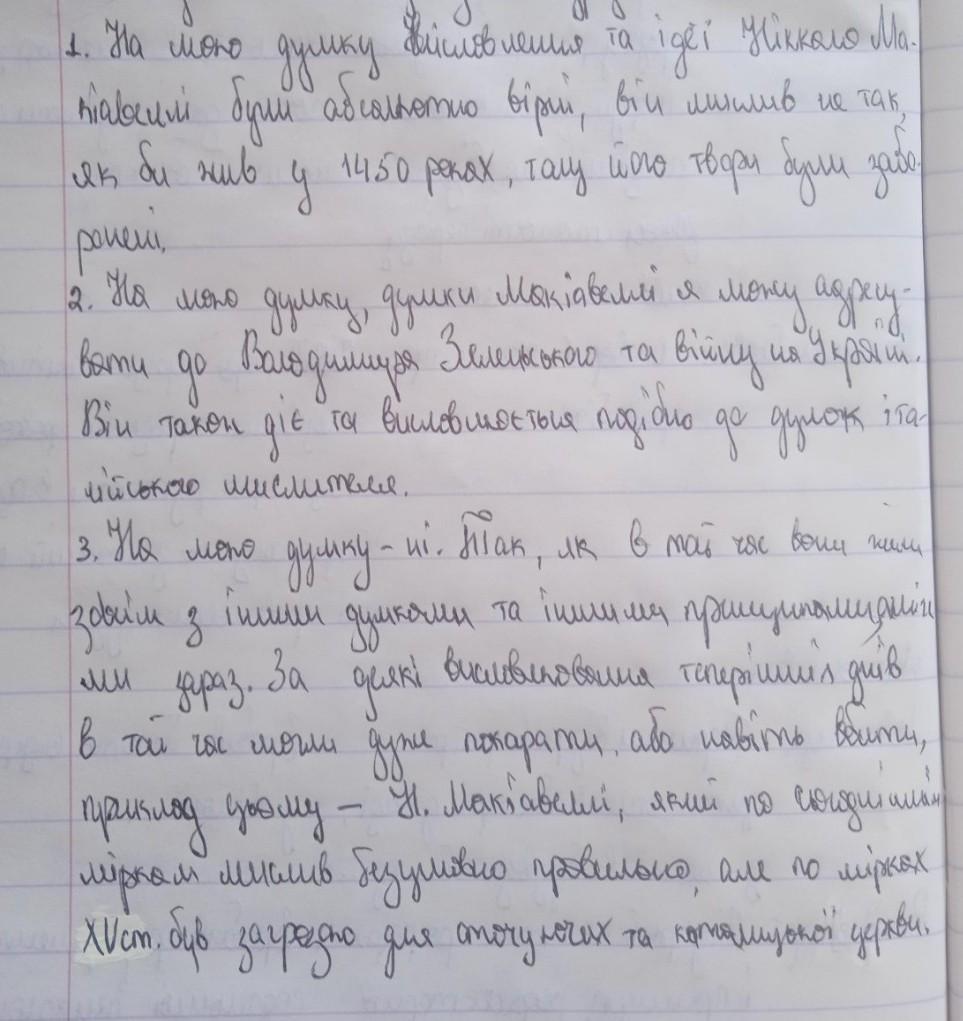 1. На мою думку висловлення та ідеї Нікколо Ма-
кіавеллі були абсолютно вірні, він мислив не так,
як би жив у 1450 роках, тащ його твори були забо-
ронені.
2. На мою думку, думки Макіавеллі я можу адресу-
вати до Володимира Зеленського та війну на Україні.
Він також діє та висловлюється подібно до думок іта-
лійського мислителя.
3. На мою думку - ні. Так, як в той час вони жили
зовсім з іншими думками та іншими принципами, ніж
ми зараз. За деякі висловлювання теперішніх днів
в той час могли дуже покарати, або навіть вбити,
приклад цьому - Н. Макіавеллі, який по сьогоднішнім
міркам мислив безумовно правильно, але по мірках
XVст. був загрозою для оточуючих та католицької церкви.